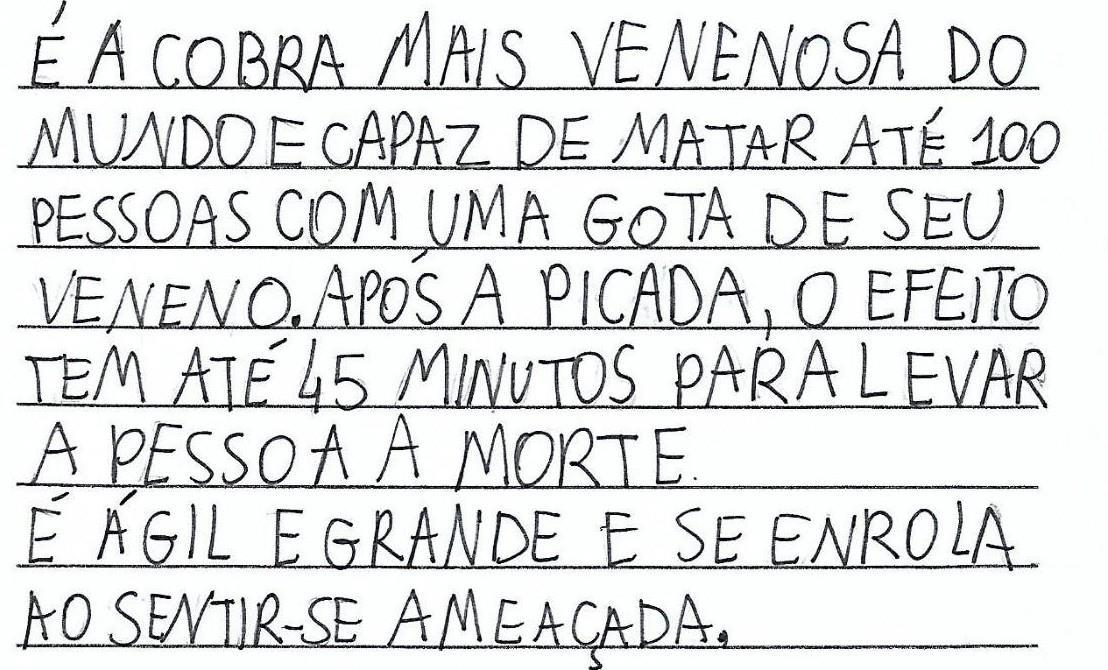 É A COBRA MAIS VENENOSA DO
MUNDO E CAPAZ DE MATAR ATÉ 100
PESSOAS COM UMA GOTA DE SEU
VENENO. APÓS A PICADA, O EFEITO
TEM ATÉ 45 MINUTOS PARA LEVAR
A PESSOA A MORTE.
É ÁGIL E GRANDE E SE ENROLA
AO SENTIR-SE AMEAÇADA.